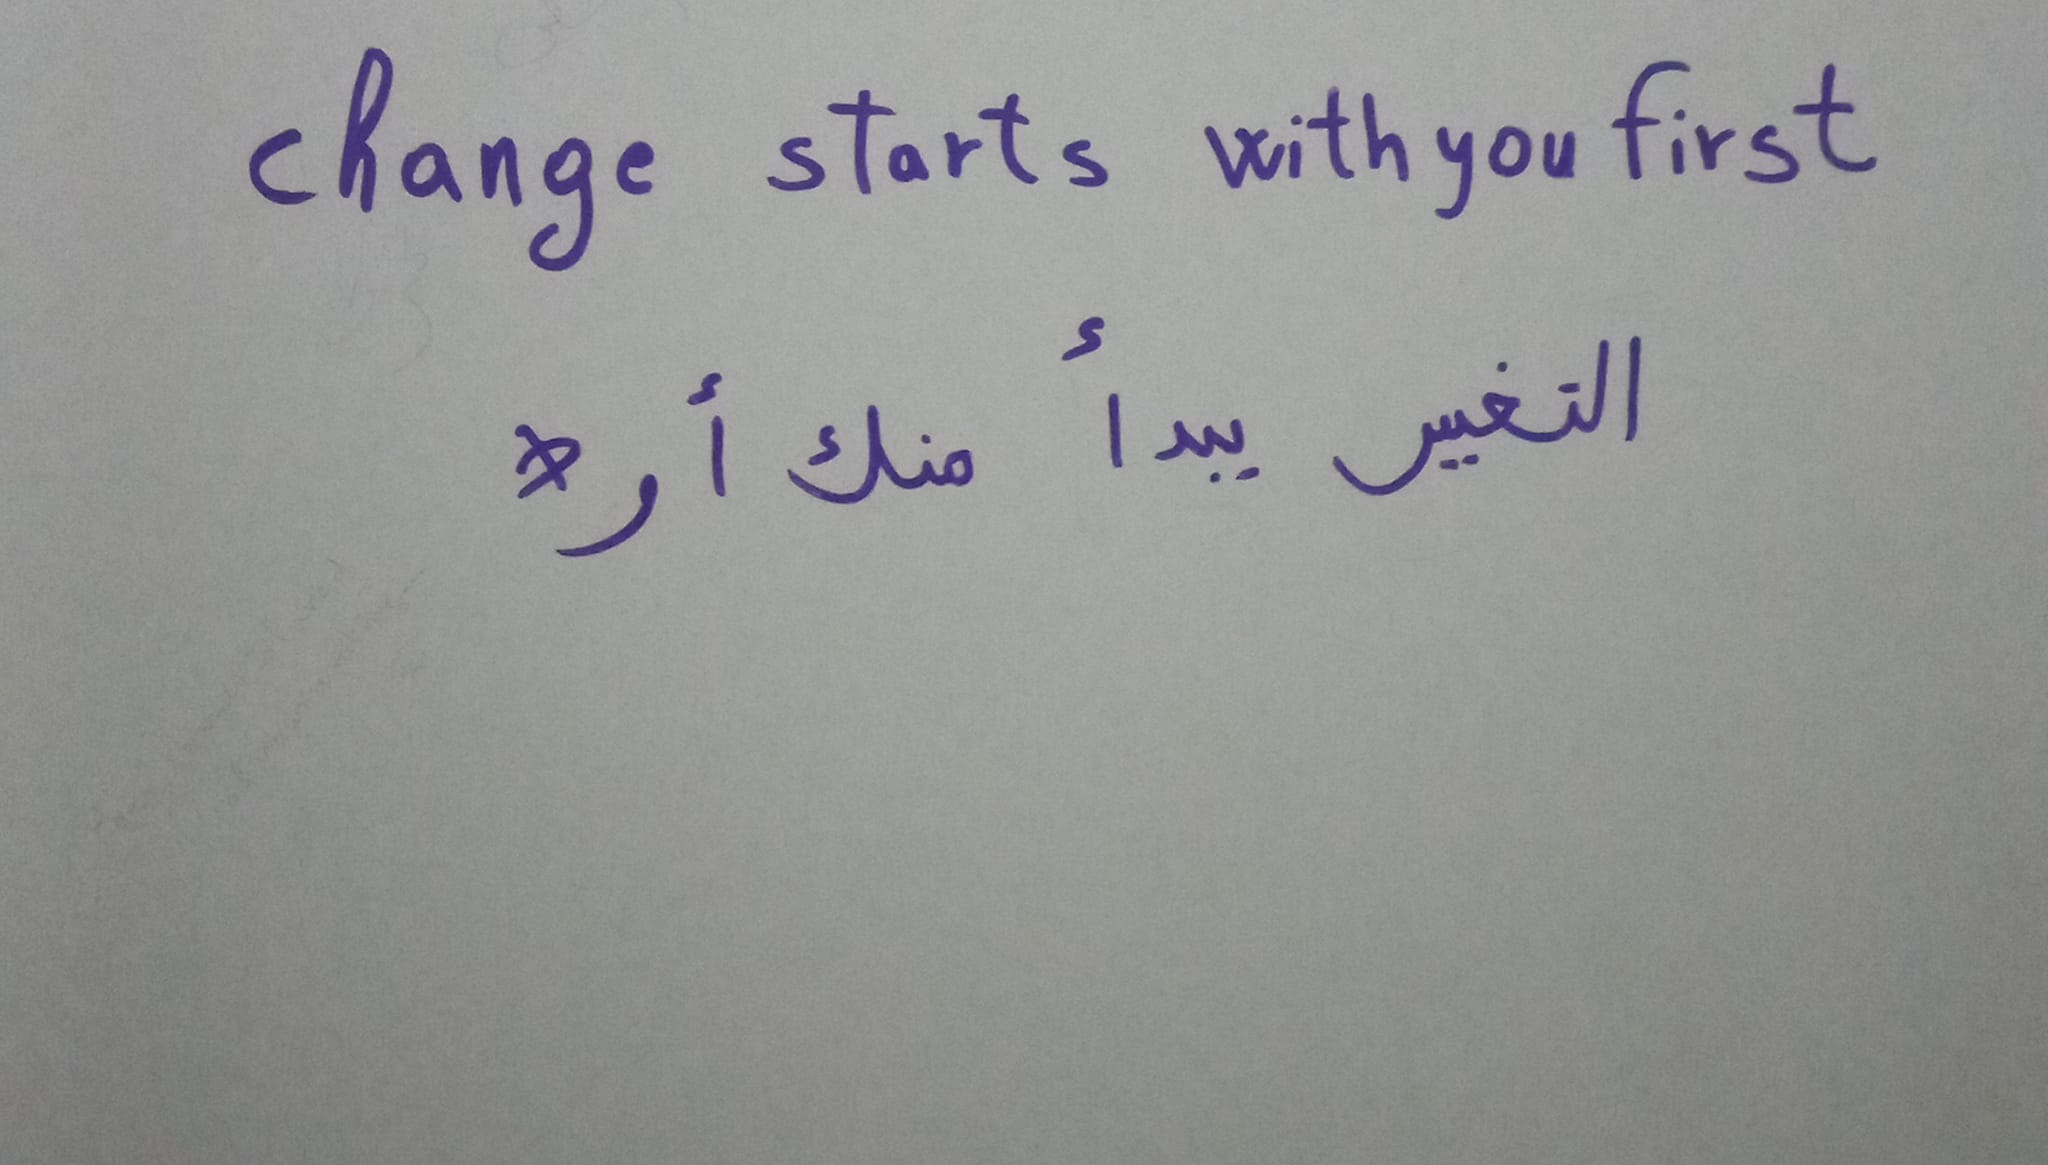 change starts with you first
التغيير يبدأ منك أولا